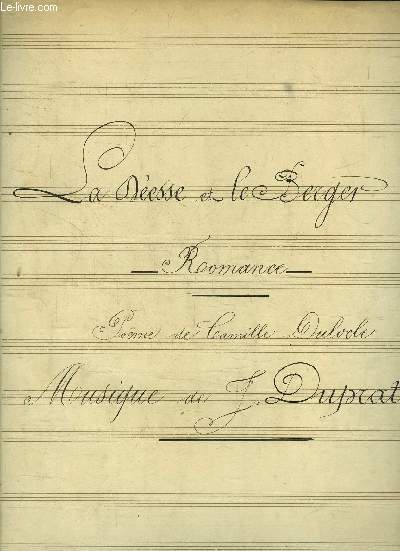 Le-livre.com
La Déesse et le Berger
Romance
Poème de Camille
Musique de J. Duprat